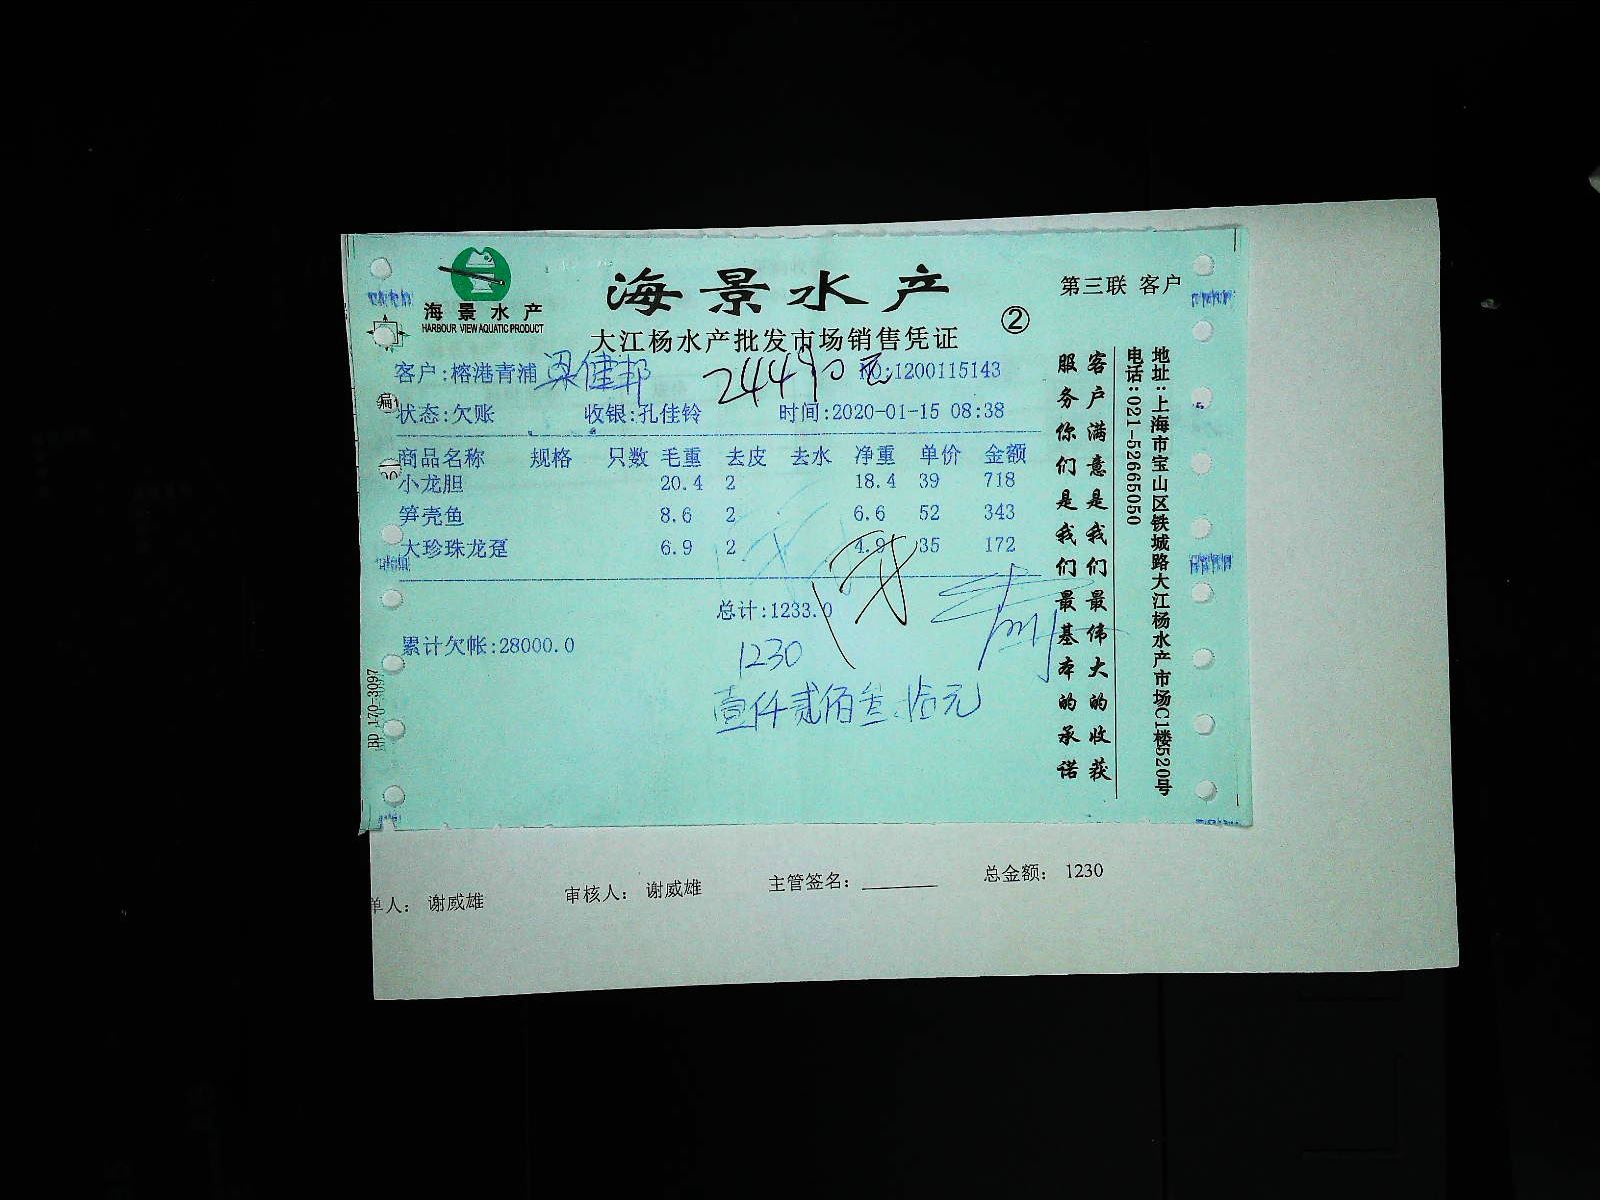 海景水产
HARBOUR VIEW AQUATIC PRODUCT
海景水产
第三联 客户
大江杨水产批发市场销售凭证
②
客户:榕港青浦 梁健邦 24490元 NO:1200115143
状态:欠账 收银:孔佳铃 时间:2020-01-15 08:38
商品名称 规格 只数 毛重 去皮 去水 净重 单价 金额
小龙胆 20.4 2 18.4 39 718
笋壳鱼 8.6 2 6.6 52 343
大珍珠龙趸 6.9 2 4.9 35 172
总计:1233.0
累计欠帐:28000.0
1230
壹仟贰佰叁拾元
客户满意是我们最伟大的收获
服务你们是我们最基本的承诺
地址:上海市宝山区铁城路大江杨水产市场C1楼520号
电话:021-52665050
BD 170-3097
单人: 谢威雄 审核人: 谢威雄 主管签名: 总金额: 1230